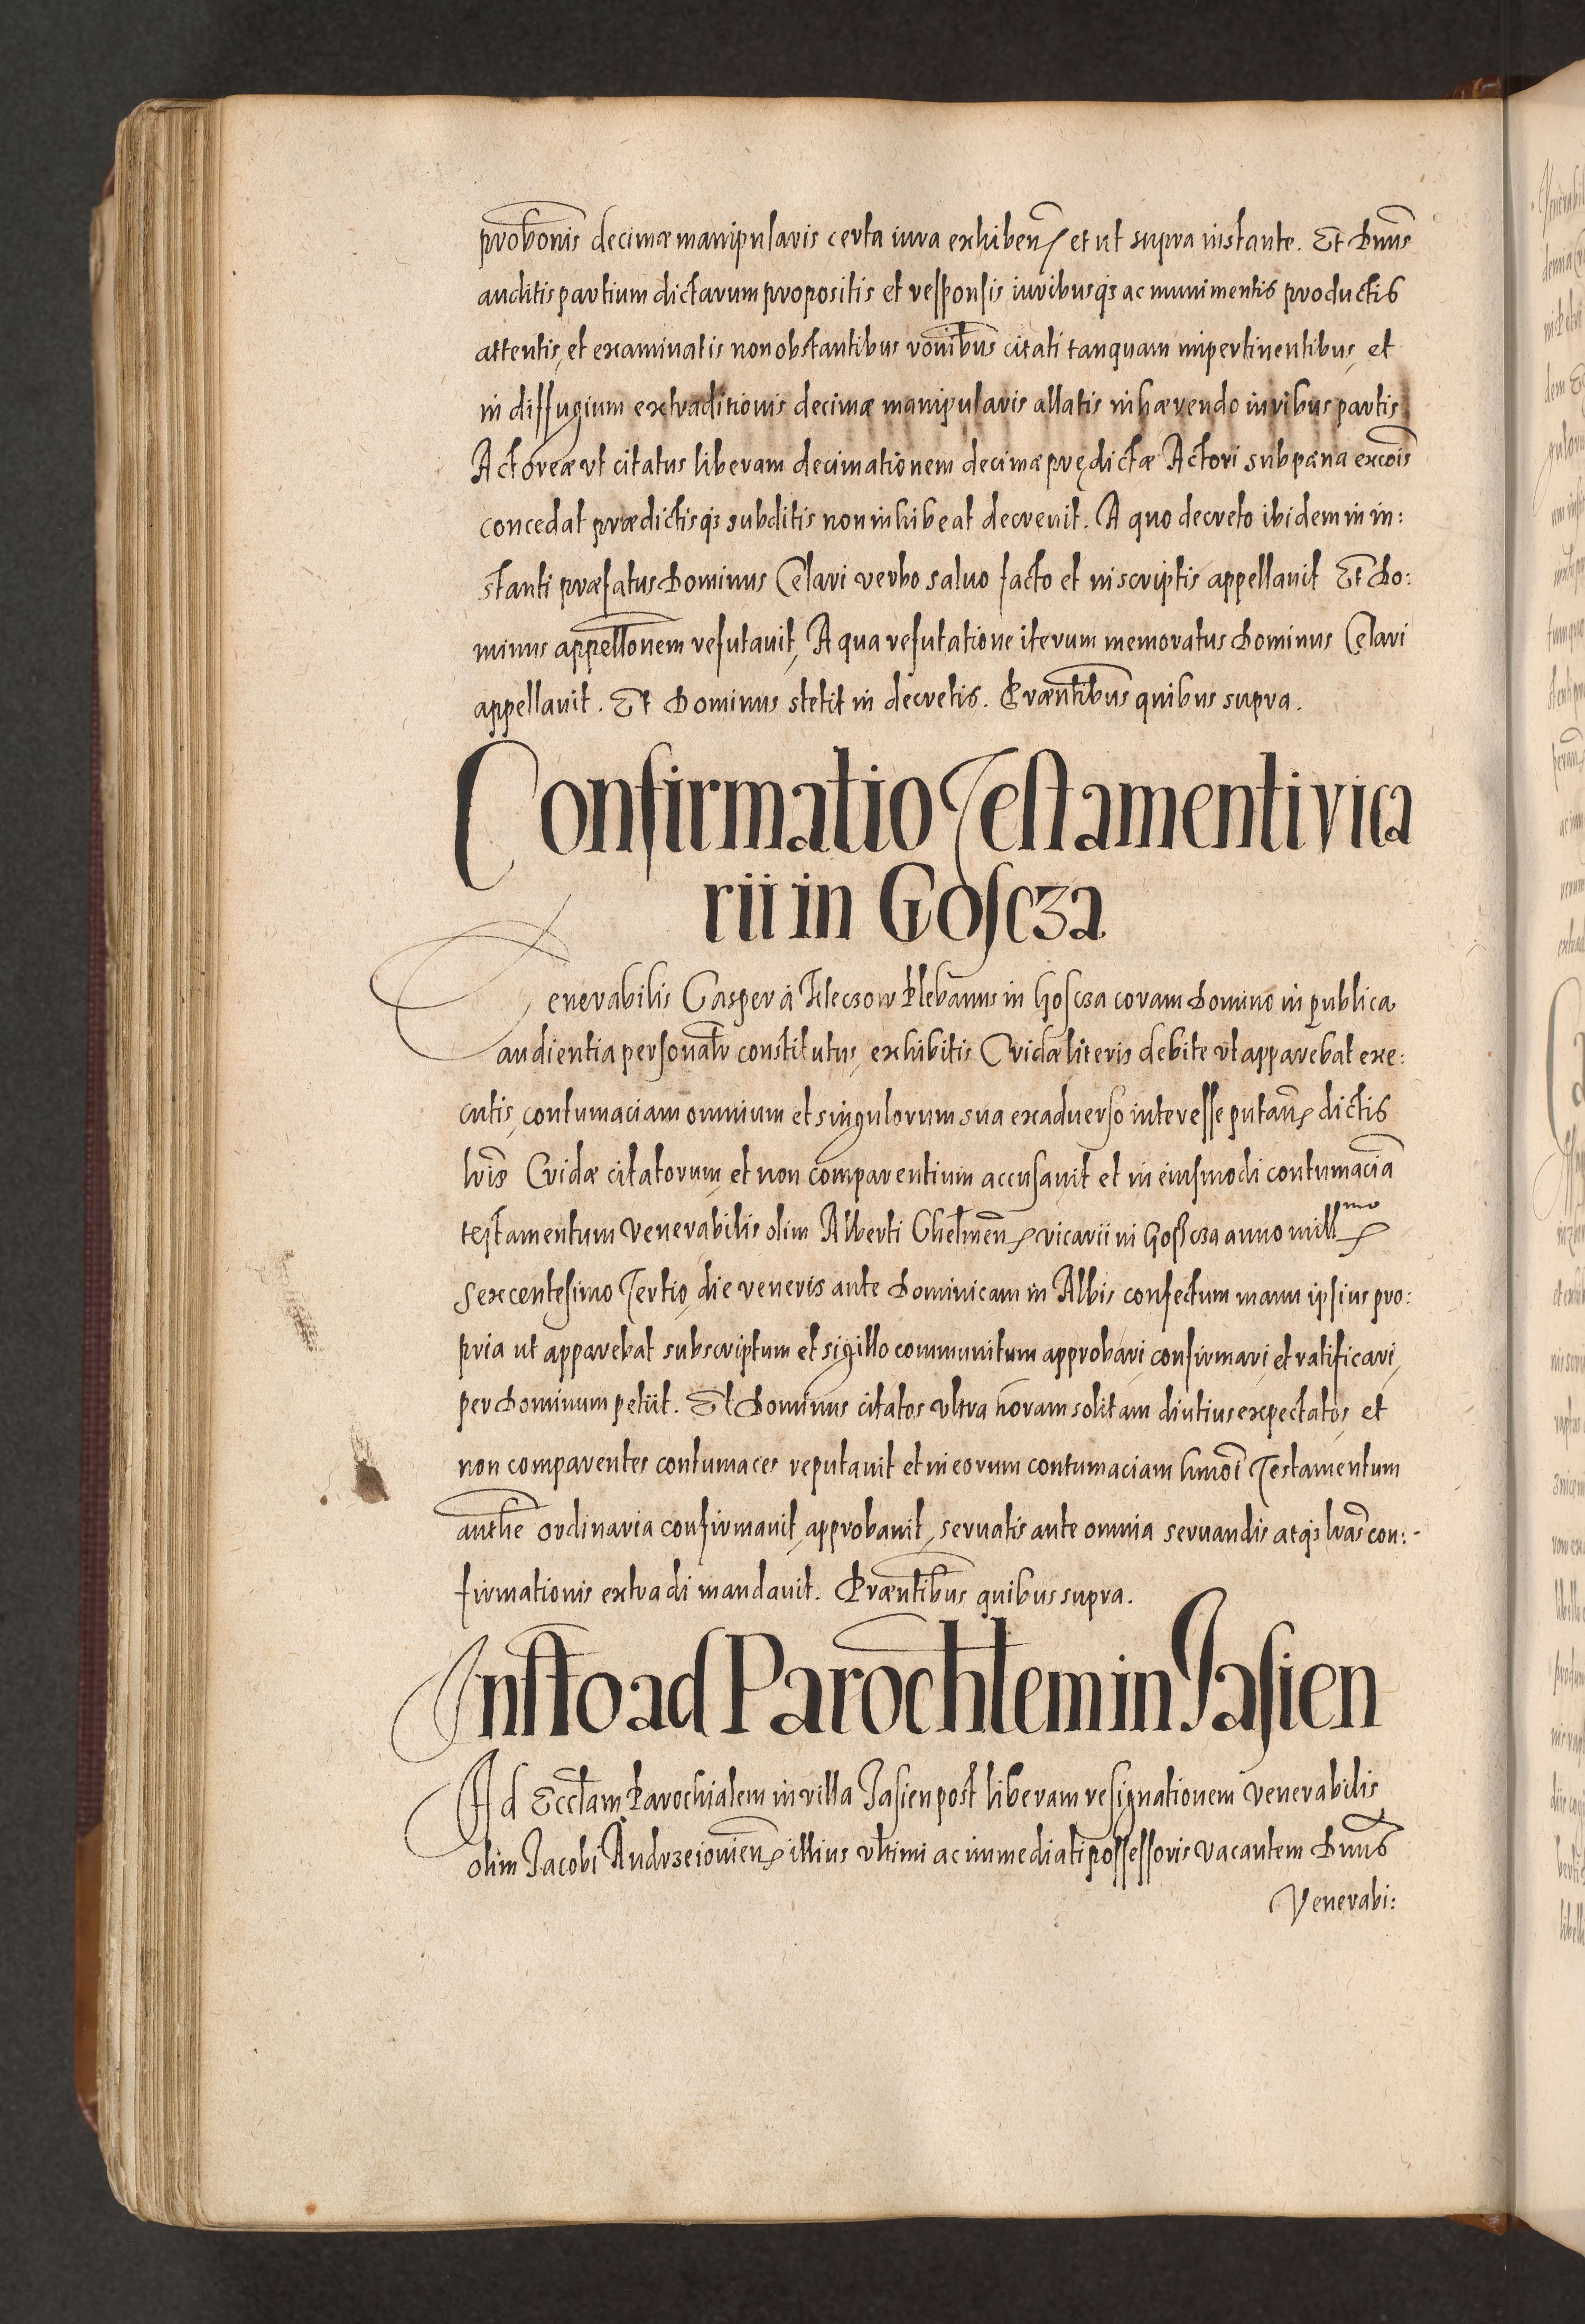 probonis decimæ manipularis certa iura exhiben̄ et ut supra instante. Et Dnus
auditis partium dictarum propositis et responsis iuribusq̄s ac munimentis productis
attentis, et examinatis non obstantibus ronibus citati tanquam impertinentibus, et
in diffugium extraditionis decimæ manipularis allatis inhærendo iuribus partis
Actoreæ vt citatus liberam decimationem decimæ prędictæ Actori sub pæna excois
concedat prædictisq̄s subditis non inhibeat decreuit. A quo decreto ibidem in in:
stanti præfatus Dominus Celari verbo saluo facto et in scriptis appellauit Et Do:
minus appellonem refutauit, A qua refutatione iterum memoratus Dominus Celari
appellauit. Et Dominus stetit in decretis. Præntibus quibus supra.
Confirmatio Testamenti vica
rii in Goscza
Venerabilis Casper à Kleczow Plebanus in Goscza coram Domino in publica
audientia personalr constitutus, exhibitis Cridæ literis debite vt apparebat exe:
cutis, contumaciam omnium et singulorum sua exaduerso interesse putan̄ dictis
lris Cridæ citatorum, et non comparentium accusauit et in eiusmodi contumaciā
testamentum Venerabilis olim Alberti Chelmen̄ vicarii in Goscza anno mill mo
Sexcentesimo Tertio, die veneris ante Dominicam in Albis confectum manu ipsius pro:
pria ut apparebat subscriptum et sigillo communitum approbari, confirmari, et ratificari,
per Dominum petiit. Et Dominus citatos vltra horam solitam diutius expectatos, et
non comparentes contumaces reputauit et in eorum contumaciam hmoi Testamentum
authe ordinaria confirmauit, approbauit, seruatis ante omnia seruandis atq̄s lras con:
firmationis extradi mandauit. Præntibus quibus supra.
Insto ad Parochlem in Jasien
Ad Ecclam Parochialem in villa Jasien post liberam resignationem Venerabilis
olim Jacobi Andrzeiouien̄ illius vltimi ac immediati possessoris vacantem Dnus
Venerabi: